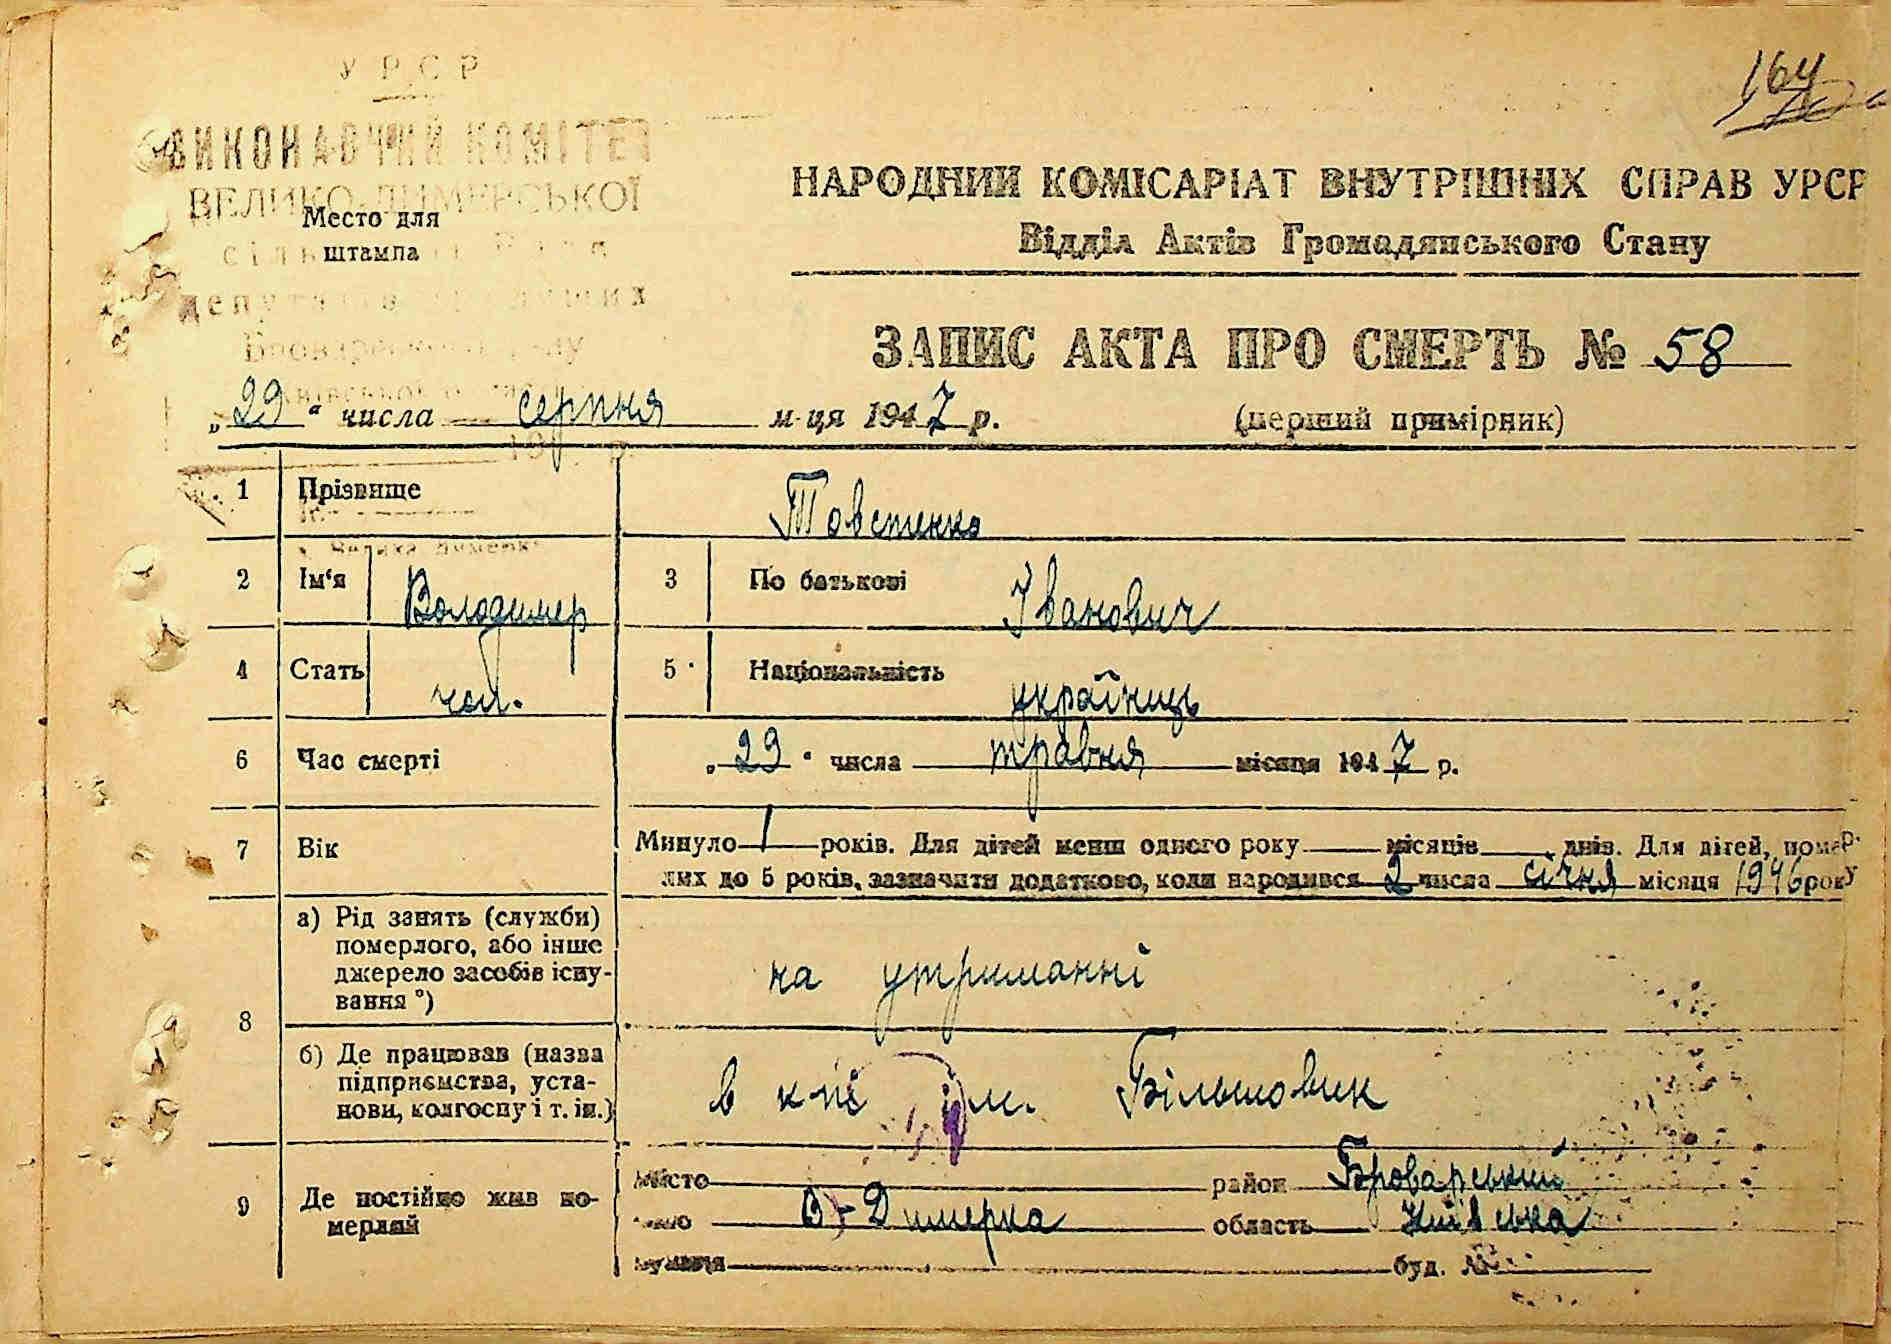 164
УРСР
ВИКОНАВЧИЙ КОМІТЕТ
ВЕЛИКО-ДИМЕРСЬКОЇ
Место для
штампа
НАРОДНИЙ КОМІСАРІАТ ВНУТРІШНІХ СПРАВ УРСР
Відділ Актів Громадянського Стану
ЗАПИС АКТА ПРО СМЕРТЬ № 58
„29“ числа серпня м-ця 1947 р. (перший примірник)
1 Прізвище Товстенко
2 Ім'я Володимер 3 По батькові Іванович
4 Стать чол. 5 Національність українць
6 Час смерті „29“ числа травня місяця 1947 р.
7 Вік Минуло 1 років. Для дітей менш одного року місяців днів. Для дітей, помер-
лих до 5 років, зазначити додатково, коли народився 2 числа січня місяця 1946 року
8 а) Рід занять (служби)
померлого, або інше
джерело засобів існу-
вання °) на утриманні
б) Де працював (назва
підприємства, уста-
нови, колгоспу і т. ін.) в кпі ім. Більшовик
9 Де постійно жив по-
мерлий
місто район Броварський
Димерка область Київська
вулиця буд. №